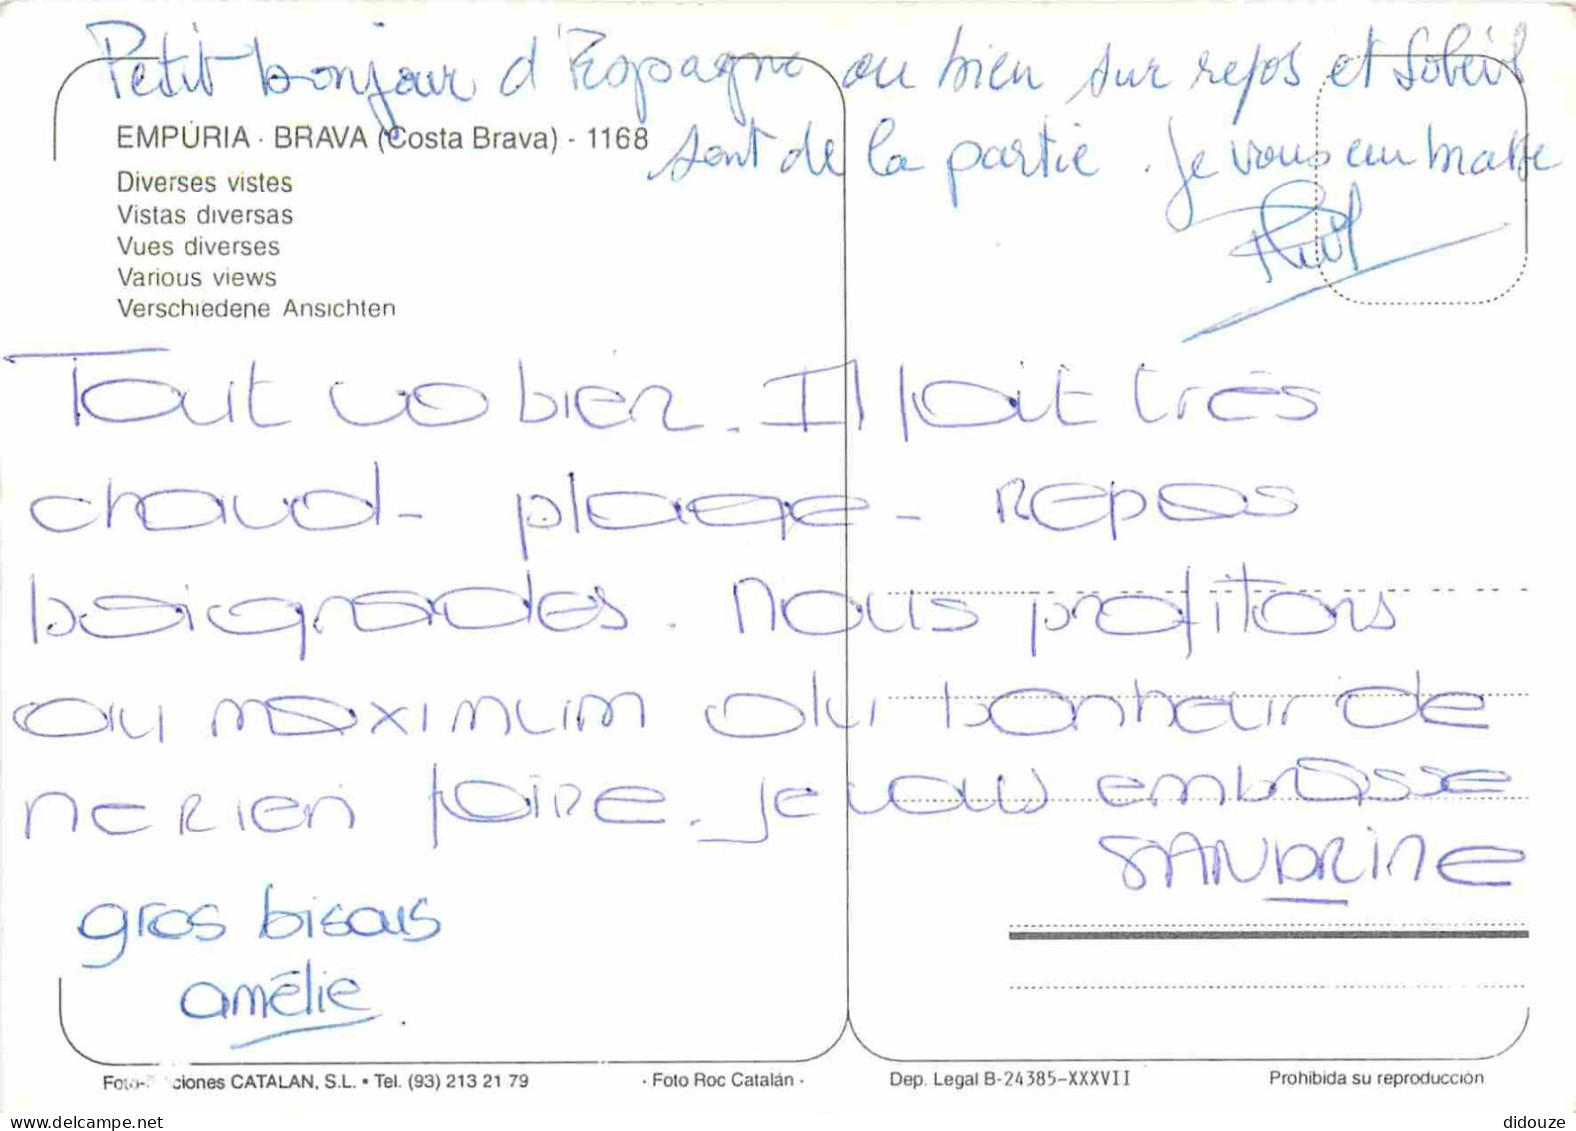 Petit bonjour d'Espagne ou bien sur repos et Soleil
sont de la partie. Je vous embrasse
EMPÚRIA · BRAVA (Costa Brava) - 1168
Diverses vistes
Vistas diversas
Vues diverses
Various views
Verschiedene Ansichten
Tout va bien. Il fait très
chaud - plage - Repos
baignades. Nous profitons
au maximum du bonheur de
ne Rien faire. Je vous embrasse
SANDRINE
gros bisous
amélie.
ciones CATALAN, S.L. • Tel. (93) 213 21 79
· Foto Roc Catalán ·
Dep. Legal B-24385-XXXVII
Prohibida su reproducción
www.delcampe.net
didouze